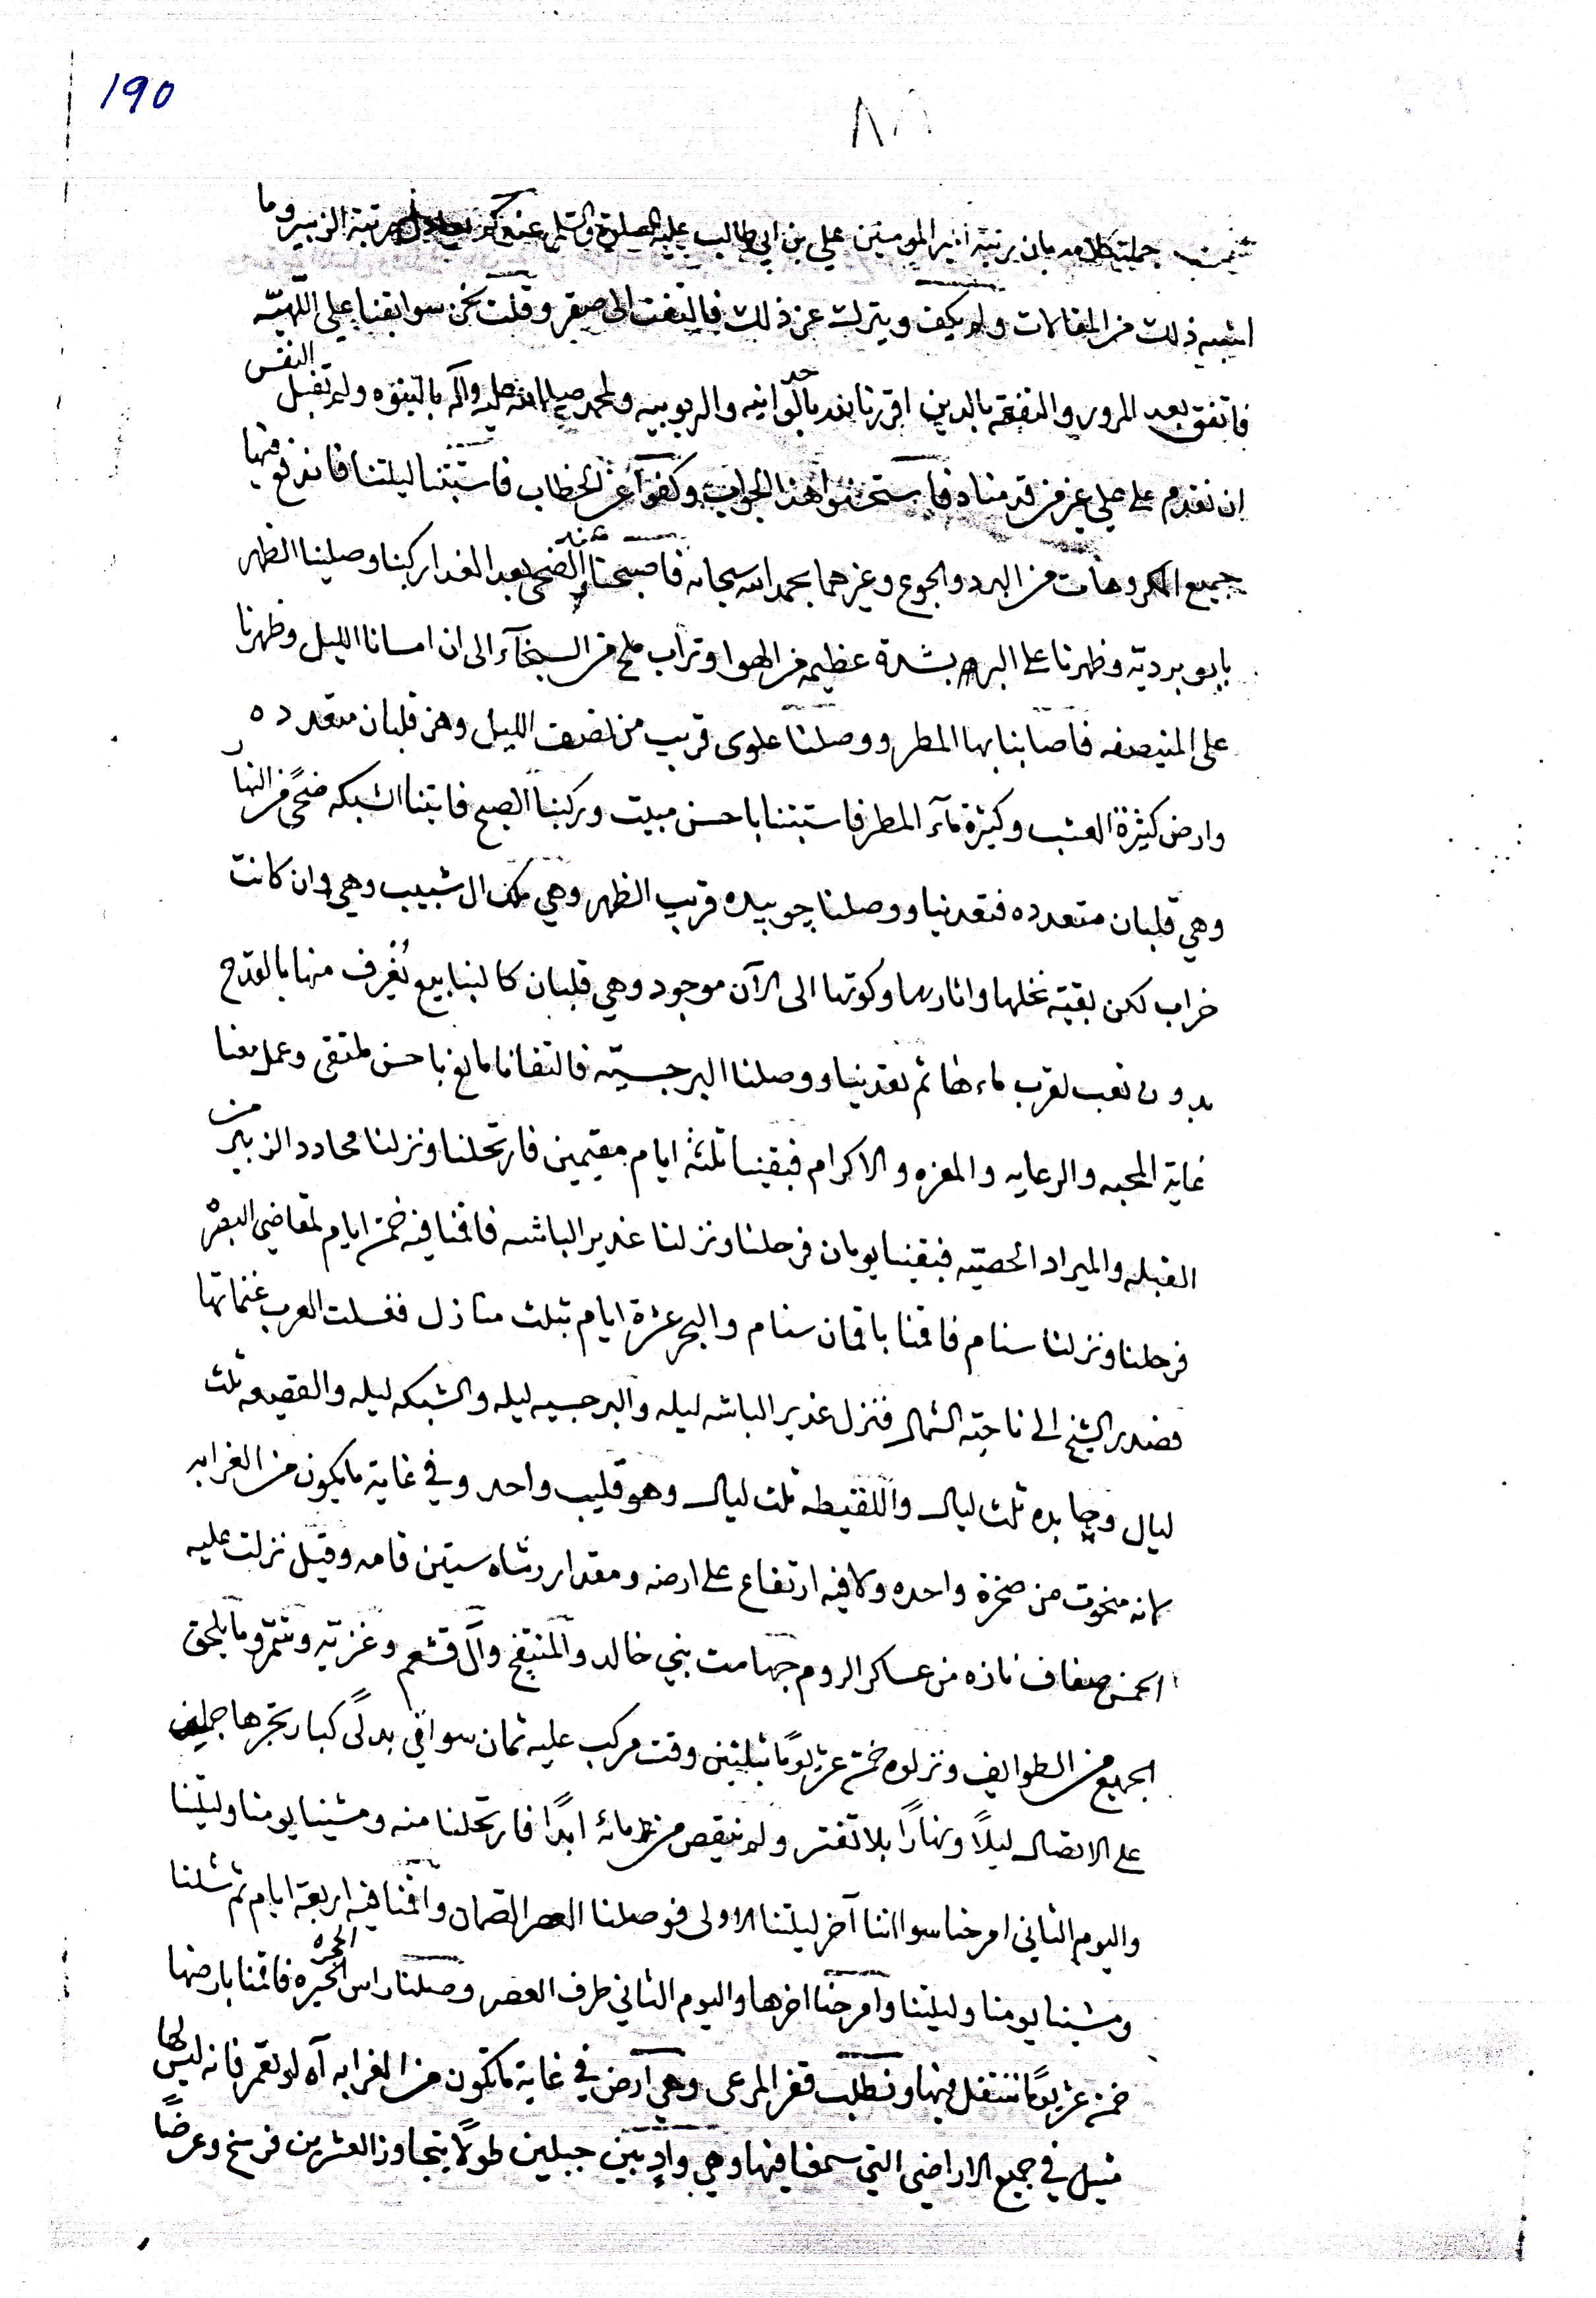 190
جملة كلامه بان رتبة امير المومنين علي بن ابي طالب عليه الصلوة والسلم مرتبة الزبير وما
اشبه ذلك من المقالات ولم يكف ويترك عن ذلك فالتفت الى صقر وقلت نحن سوابقنا على
فاتفق بعد المرور والتفقه بالدين اقررنا بالوحدانيه والربوبيه ولمحمد صلى الله عليه وآله بالنبوه ولم تقبل النفس
ان نقدم على علي غير من قدمناه فاستحسنوا هذا الجواب وكفوا عن الخطاب فاستبتنا ليلتنا فاندفع فيها
جميع المكروهات من البرد والجوع وغيرهما بحمد الله سبحانه فاصبحنا وعند الضحى بعد الغدا ركبنا وصلينا الظهر
بابو برديّه وظهرنا على البر بشدة عظيمه من الهوا وتراب ملح من السبخآء الى ان امسانا الليل وظهرنا
على المنيصفه فاصابنا بها المطر ووصلنا علوى قريب من نصف الليل وهن قلبان متعدده
وارض كثيرة العشب وكثيرة مآء المطر فاستبتنا باحسن مبيت وركبنا الصبح فاتينا الشبكه ضحًى من النهار
وهي قلبان متعدده فتعدينا ووصلنا چويبده قريب الظهر وهي ملك ال شبيب وهي وان كانت
خراب لكن بقية نخلها واثارها وكوتها الى الآن موجود وهي قلبان كالينابيع يُغرف منها بالقدح
بدون تعب لقرب ماءها ثم تعدينا ووصلنا البرجسيّه فالتفانا مانع باحسن ملتقى وعمل معنا
غاية المحبه والرعايه والمعزه والاكرام فبقينا ثلثة ايام مقيمين فارتحلنا ونزلنا محادد الزبير من
القبله والميراد الحصيّه فبقينا يومان فرحلنا ونزلنا غدير الباشه فاقمنا فيه خمسة ايام لمقاضي البصرة
فرحلنا ونزلنا سنام فاقمنا باقمان سنام والبحر عشرة ايام بثلث منازل فغسلت العرب غنماتها
فصدر الشيخ الى ناحية الشمال فنزل غدير الباشه ليله والبرجسيه ليله والشبكه ليله والقصيعه ثلث
ليال وچابده ثلث ليال واللقيطه ثلث ليال وهو قليب واحد وفي غاية ما يكون من الغرابه
لانه منحوت من صخرة واحده ولا فيه ارتفاع على ارضه ومقدار رشاه ستين قامه وقيل نزلت عليه
صفاف نازه من عساكر الروم جهامت بني خالد والمنتفج وآل قشعم وغزيه وشمّر وما يلحق
الجميع من الطوايف ونزلوه خمسة عشر يومًا وقت مركب عليه ثمان سواقي بدلًى كبار تجرها جملين
على الاتصال ليلًا ونهارًا بلا تفتر ولم ينقص من مائه ابدًا فارتحلنا منه ومشينا يومنا وليلتنا
واليوم الثاني امرحنا سوا اننا آخر ليلتنا الاولى فوصلنا العصر الصمان واقمنا فيه اربعة ايام ثم شلنا
ومشينا يومنا وليلتنا وامرحنا اخرها واليوم الثاني طرف العصر وصلنا راس الحجره فاقمنا بارضها
خمسة عشر يومًا ننتقل فيها ونطلب قفر المرعى وهي ارض في غاية ما تكون من الغرابه آه لو تعمر فانه ليس لها
مثيل في جميع الاراضي التي سمعنا فيها وهي وادٍ بين جبلين طولًا يتجاوز العشرين فرسخ وعرضًا